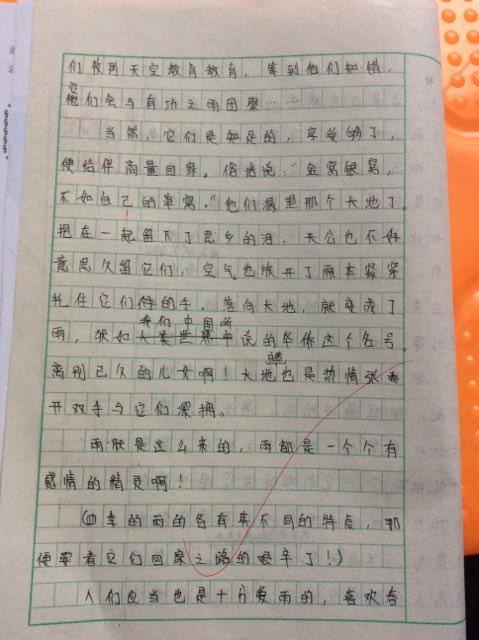 们收到天空教育教育，等到他们知错，
它们会与有功之雨团聚……
当然，它们是知足的，享受够了，
便结伴商量回家。俗话说："金窝银窝，
不如自己的草窝。"他们想里那个大地了。
抱在一起留下了思乡的泪，天公也不好
意思久留它们，空气也放开了原本紧紧
扎住它们的手，落向大地，就变成了
我们中国所
雨，犹如说的华侨这个名号
离别已久的儿女啊！大地也是热情张
开双手与它们深拥。
雨就是这么来的，雨都是一个个有
感情的精灵啊！
（四季的雨的各有其不同的特点，那
便要看它们回家之路的艰辛了！）
人们应当也是十分爱雨的，喜欢春